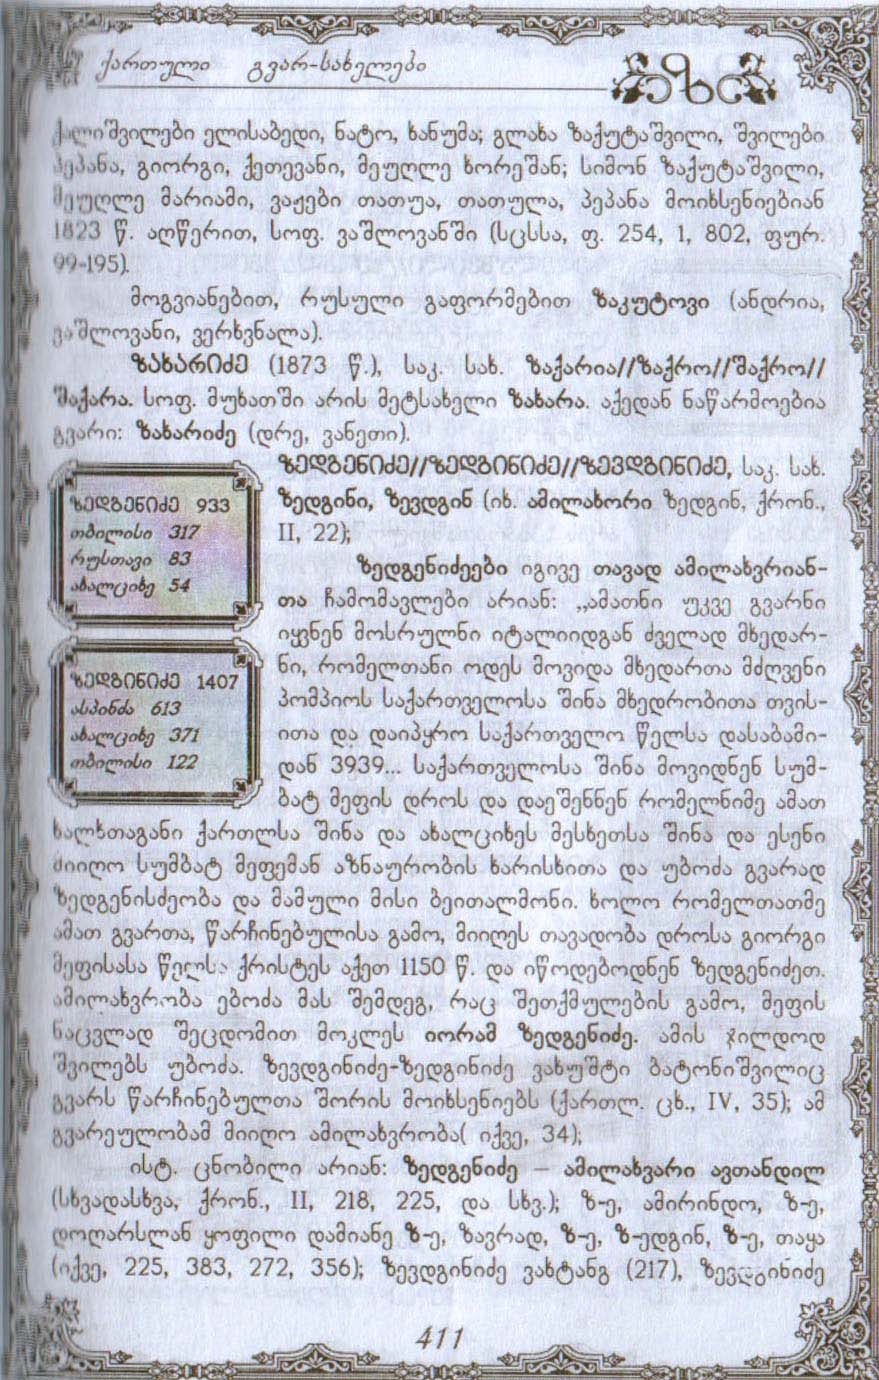 ქართული გვარ-სახელები
ზ
ქალიშვილები ელისაბედი, ნატო, ხანუმა; გლახა ზაქუტაშვილი, შვილები
პეპანა, გიორგი, ქეთევანი, მეუღლე ხორეშან; სიმონ ზაქუტაშვილი,
მეუღლე მარიამი, ვაჟები თათუა, თათულა, პეპანა მოიხსენიებიან
1823 წ. აღწერით, სოფ. ვაშლოვანში (სცსსა, ფ. 254, 1, 802, ფურ.
99-195).
მოგვიანებით, რუსული გაფორმებით ზაკუტოვი (ანდრია,
ვაშლოვანი, ვერხვნალა).
ზახარიძე (1873 წ.), საკ. სახ. ზაქარია//ზაქრო//შაქრო//
შაქარა. სოფ. მუხათში არის მეტსახელი ზახარა. აქედან ნაწარმოებია
გვარი: ზახარიძე (დრე, ვანეთი).
ზედგენიძე//ზედგინიძე//ზევდგინიძე, საკ. სახ.
ზედგინი, ზევდგინ (იხ. ამილახორი ზედგინ, ქრონ.,
II, 22);
ზედგენიძე 933
თბილისი 317
რუსთავი 83
ახალციხე 54
ზედგინიძე 1407
ასპინძა 613
ახალციხე 371
თბილისი 122
ზედგენიძეები იგივე თავად ამილახვრიან-
თა ჩამომავლები არიან: „ამათნი უკვე გვარნი
იყვნენ მოსრულნი იტალიიდგან ძველად მხედარ-
ნი, რომელთანი ოდეს მოვიდა მხედართა მძღვენი
პომპიოს საქართველოსა შინა მხედრობითა თვის-
ითა და დაიპყრო საქართველო წელსა დასაბამი-
დან 3939... საქართველოსა შინა მოვიდნენ სუმ-
ბატ მეფის დროს და დაეშენნენ რომელნიმე ამათ
ხალხთაგანი ქართლსა შინა და ახალციხეს მესხეთსა შინა და ესენი
მიიღო სუმბატ მეფემან აზნაურობის ხარისხითა და უბოძა გვარად
ზედგენისძეობა და მამული მისი ბეითალმონი. ხოლო რომელთამე
ამათ გვართა, წარჩინებულისა გამო, მიიღეს თავადობა დროსა გიორგი
მეფისასა წელსა ქრისტეს აქეთ 1150 წ. და იწოდებოდნენ ზედგენიძეთ.
ამილახვრობა ებოძა მას შემდეგ, რაც შეთქმულების გამო, მეფის
ნაცვლად შეცდომით მოკლეს იორამ ზედგენიძე. ამის ჯილდოდ
შვილებს უბოძა. ზევდგინიძე-ზედგინიძე ვახუშტი ბატონიშვილიც
გვარს წარჩინებულთა შორის მოიხსენიებს (ქართლ. ცხ., IV, 35); ამ
გვარეულობამ მიიღო ამილახვრობა( იქვე, 34);
ისტ. ცნობილი არიან: ზედგენიძე – ამილახვარი ავთანდილ
(სხვადასხვა, ქრონ., II, 218, 225, და სხვ.); ზ-ე, ამირინდო, ზ-ე,
დოღარსლან ყოფილი დამიანე ზ-ე, ზავრად, ზ-ე, ზ-ედგინ, ზ-ე, თაყა
(იქვე, 225, 383, 272, 356); ზევდგინიძე ვახტანგ (217), ზევდგინიძე
411